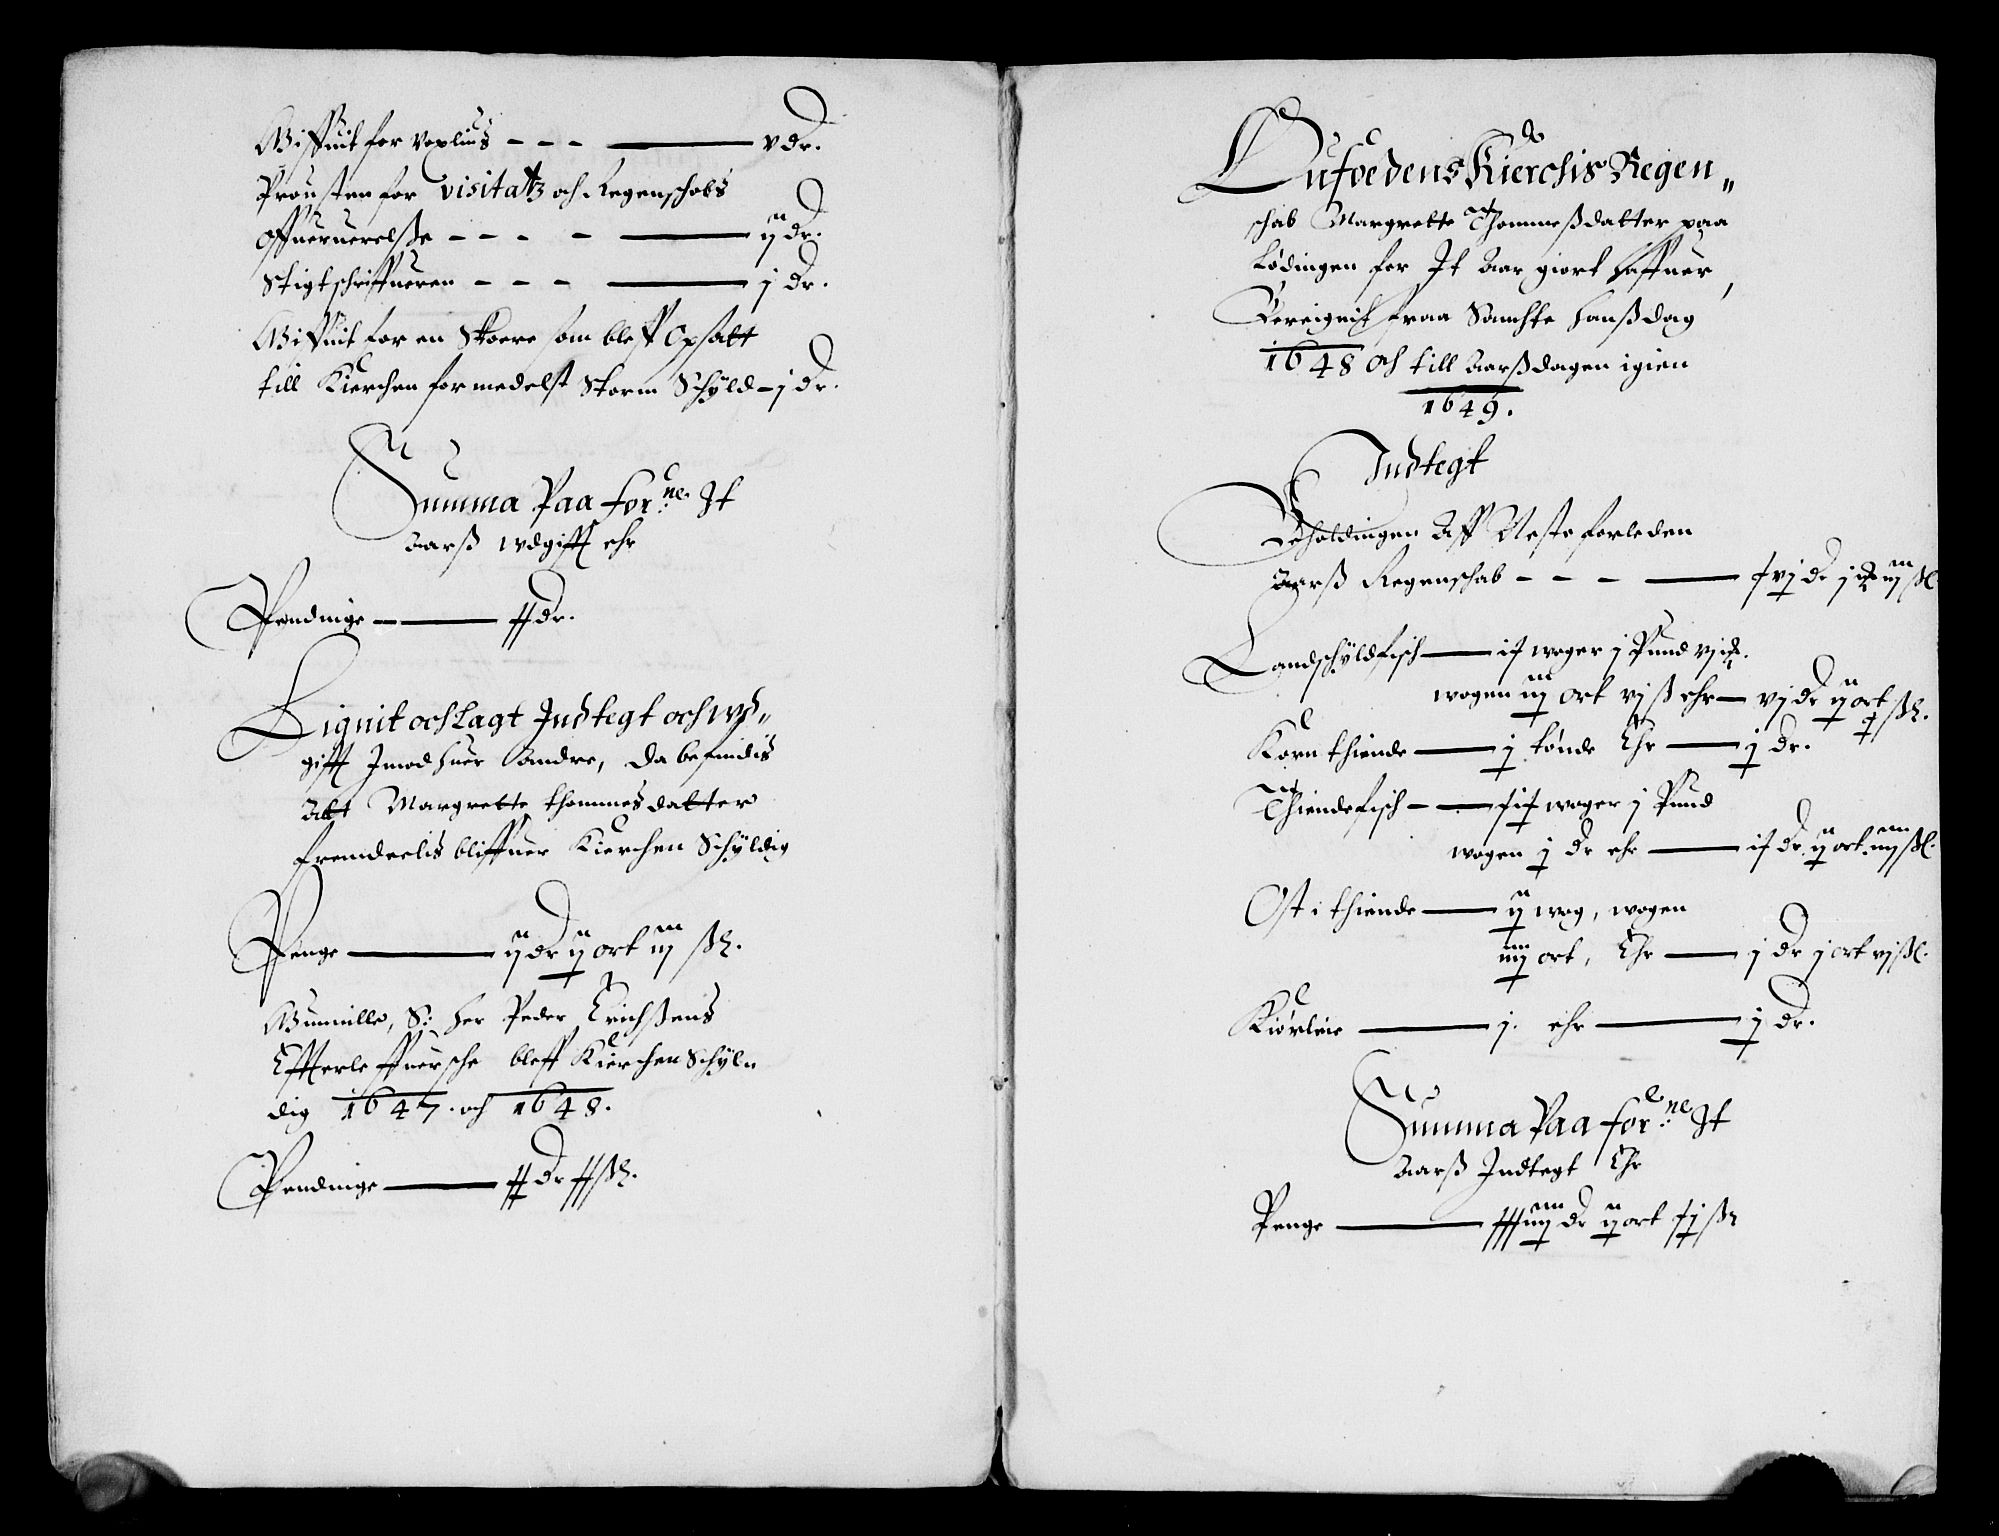 Giffuit for voxlius - - - — v dr.
Prousten for visitatz och Regenschabs
offueruerelsse - - - - — ij dr.
Stigtschriffueren - - - — j dr.
Giffuit for en Stoere som bleff opsatt
till Kierchen formedelst Storm Schÿld - j dr.
Summa Paa for:ne Jt
Aarß wdgifft ehr
Pendinge — dr.
Lignit och lagt Indtegt och wd„
gifft Imod huer Andre, da befindis
Att Margrette thommesdatter
fremdeelis bliffuer Kierchen Schÿldig
Penge — ij dr ij ort iij ßl.
S: Her Peder Erichßens
Effterleffuersche bleff Kierchen Schÿl„
dig 1647. och 1648.
Pendinge — dr ßl.
Kierchis Regen„
schab Margrette Thommeßdatter paa
Lødingen for Jt Aar giort haffuer,
Bereignit fraa Sanchte Hanßdag
1648 och till Aarßdagen igien
1649.
Indtegt
Beholdingen Aff Neste forleden
Aarß Regenschab - - - — xvj dr j ort iij ßl.
Landschÿldfisch — ix woger j Pund vj
wogen iij ort vj ß ehr — vj dr ij ort ßl.
Korn thiende — j tønde Ehr — j dr.
Thiendefisch - — woger j Pund
wogen j dr ehr — ix dr ij ort iiij ßl.
Ost i thiende — ij wog, wogen
iiij ort, Ehr — j dr j ort vj ßl.
Kiørleie — j. ehr — j dr.
Summa Paa for:ne Jt
Aarß Indtegt Ehr
Penge — xxxiiij dr ij ort xj ßl